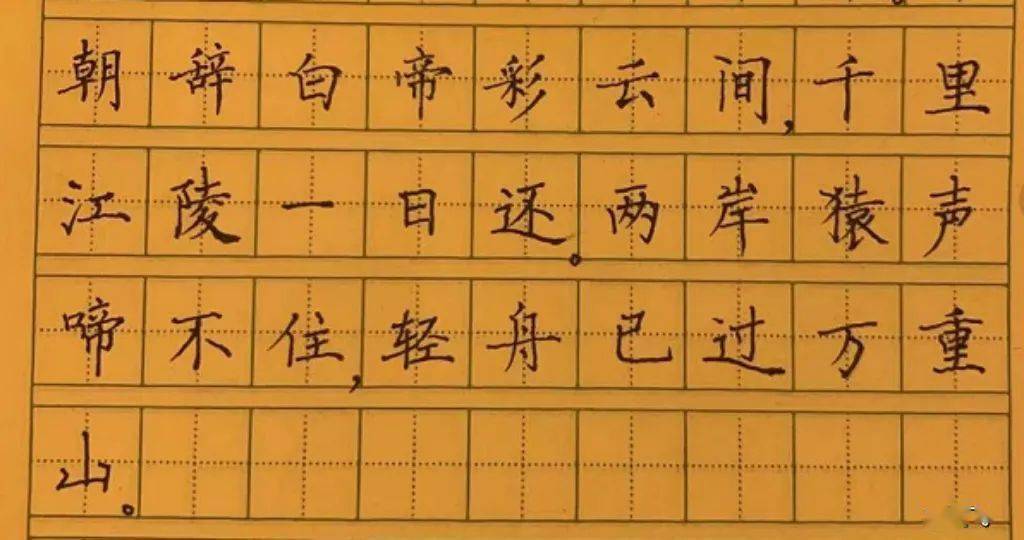 朝辞白帝彩云间,千里
江陵一日还。两岸猿声
啼不住,轻舟已过万重
山。